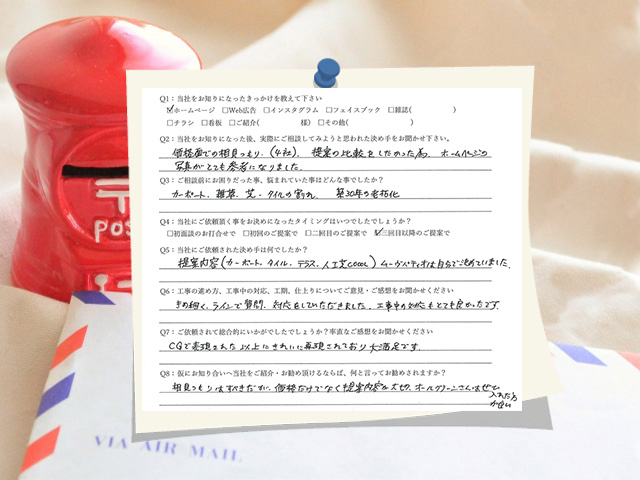 Q1：当社をお知りになったきっかけを教えて下さい
☑ホームページ　□Web広告　□インスタグラム　□フェイスブック　□雑誌(　　　　　)
□チラシ　□看板　□ご紹介(　　　　　様)　□その他(　　　　　)
Q2：当社をお知りになった後、実際にご相談してみようと思われた決め手をお聞かせ下さい。
価格面での相見つもり、(4社)、提案の比較をしたかった為、ホームページの
写真がとても参考になりました。
Q3：ご相談前にお困りだった事、悩まれていた事はどんな事でしたか？
カーポート、雑草、芝、タイルの割れ、築30年の老朽化
Q4：当社にご依頼頂く事をお決めになったタイミングはいつでしたでしょうか？
□初面談のお打合せで　□初回のご提案で　□二回目のご提案で　☑三回目以降のご提案で
Q5：当社にご依頼された決め手は何でしたか？
提案内容(カーポート、タイル、テラス、人工芝COOOL) ムーヴパティオは自分で決めていました。
Q6：工事の進め方、工事中の対応、工期、仕上りについてご意見・ご感想をお聞かせください
きめ細く、ラインで質問、対応をしていただきました。工事中の対応もとても良かったです。
Q7：ご依頼されて総合的にいかがでしたでしょうか？率直なご感想をお聞かせください
CGで表現された以上にきれいに再現されており大満足です。
Q8：仮にお知り合いへ当社をご紹介・お勧め頂けるならば、何と言ってお勧めされますか？
相見つもりはすべきだが、価格だけでなく提案内容が大切、オールグリーンさんはぜひ
入れた方
が良い
POS
VIA AIR MAIL